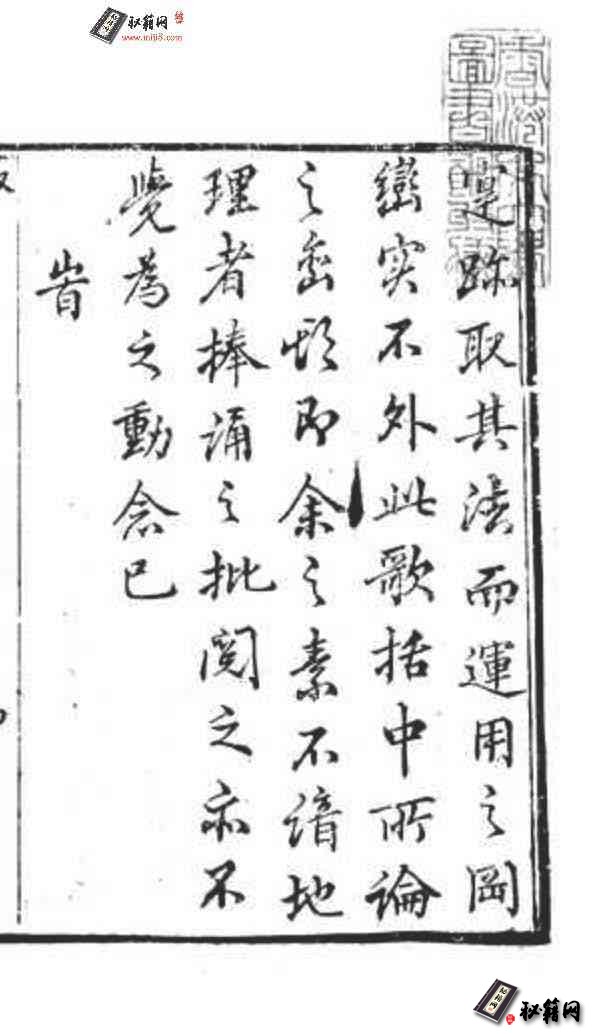 秘籍网
www.miji8.com
跡取其法而運用之岡
巒實不外此歌括中所論
之巒頭即余之素不諳地
理者捧誦之批閱之亦不
覺為之動念已
旹
秘籍网